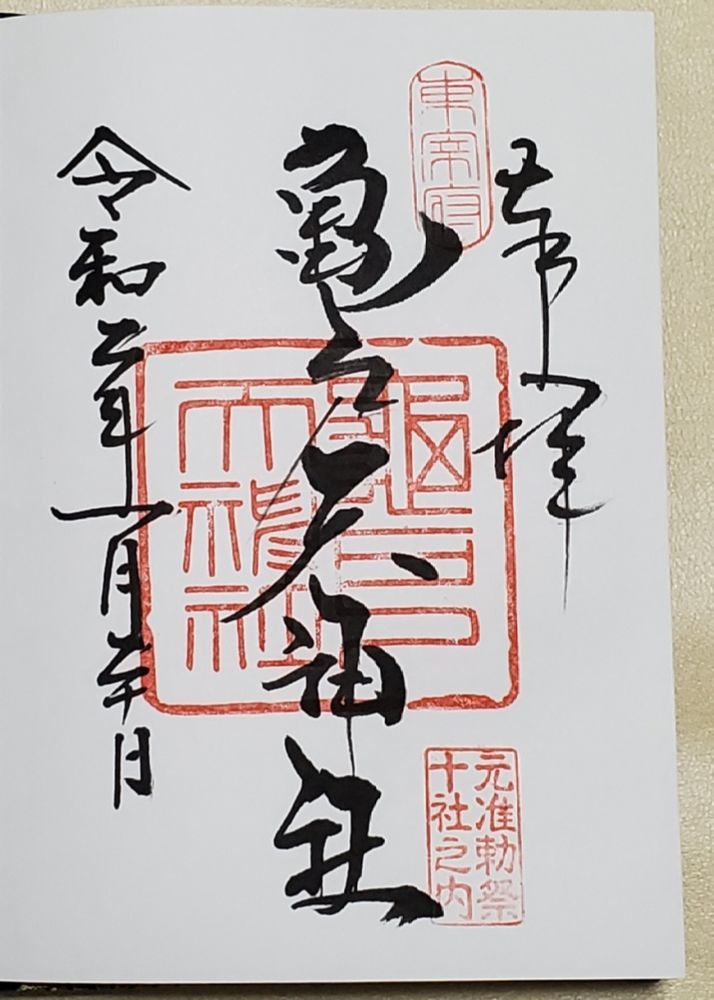 奉拝
東宰府
龜戸天神社
龜戸天神社
元准勅祭
十社之内
令和二年十一月二十日